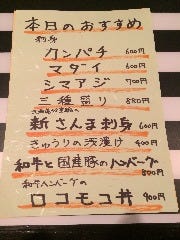 本日のおすすめ
刺身
カンパチ 600円
マダイ 600円
シマアジ 700円
三種盛り 880円
新さんま刺身 600円
きゅうりの浅漬け 400
和牛と国産豚のハンバーグ 800円
和牛ハンバーグの
ロコモコ丼 900円